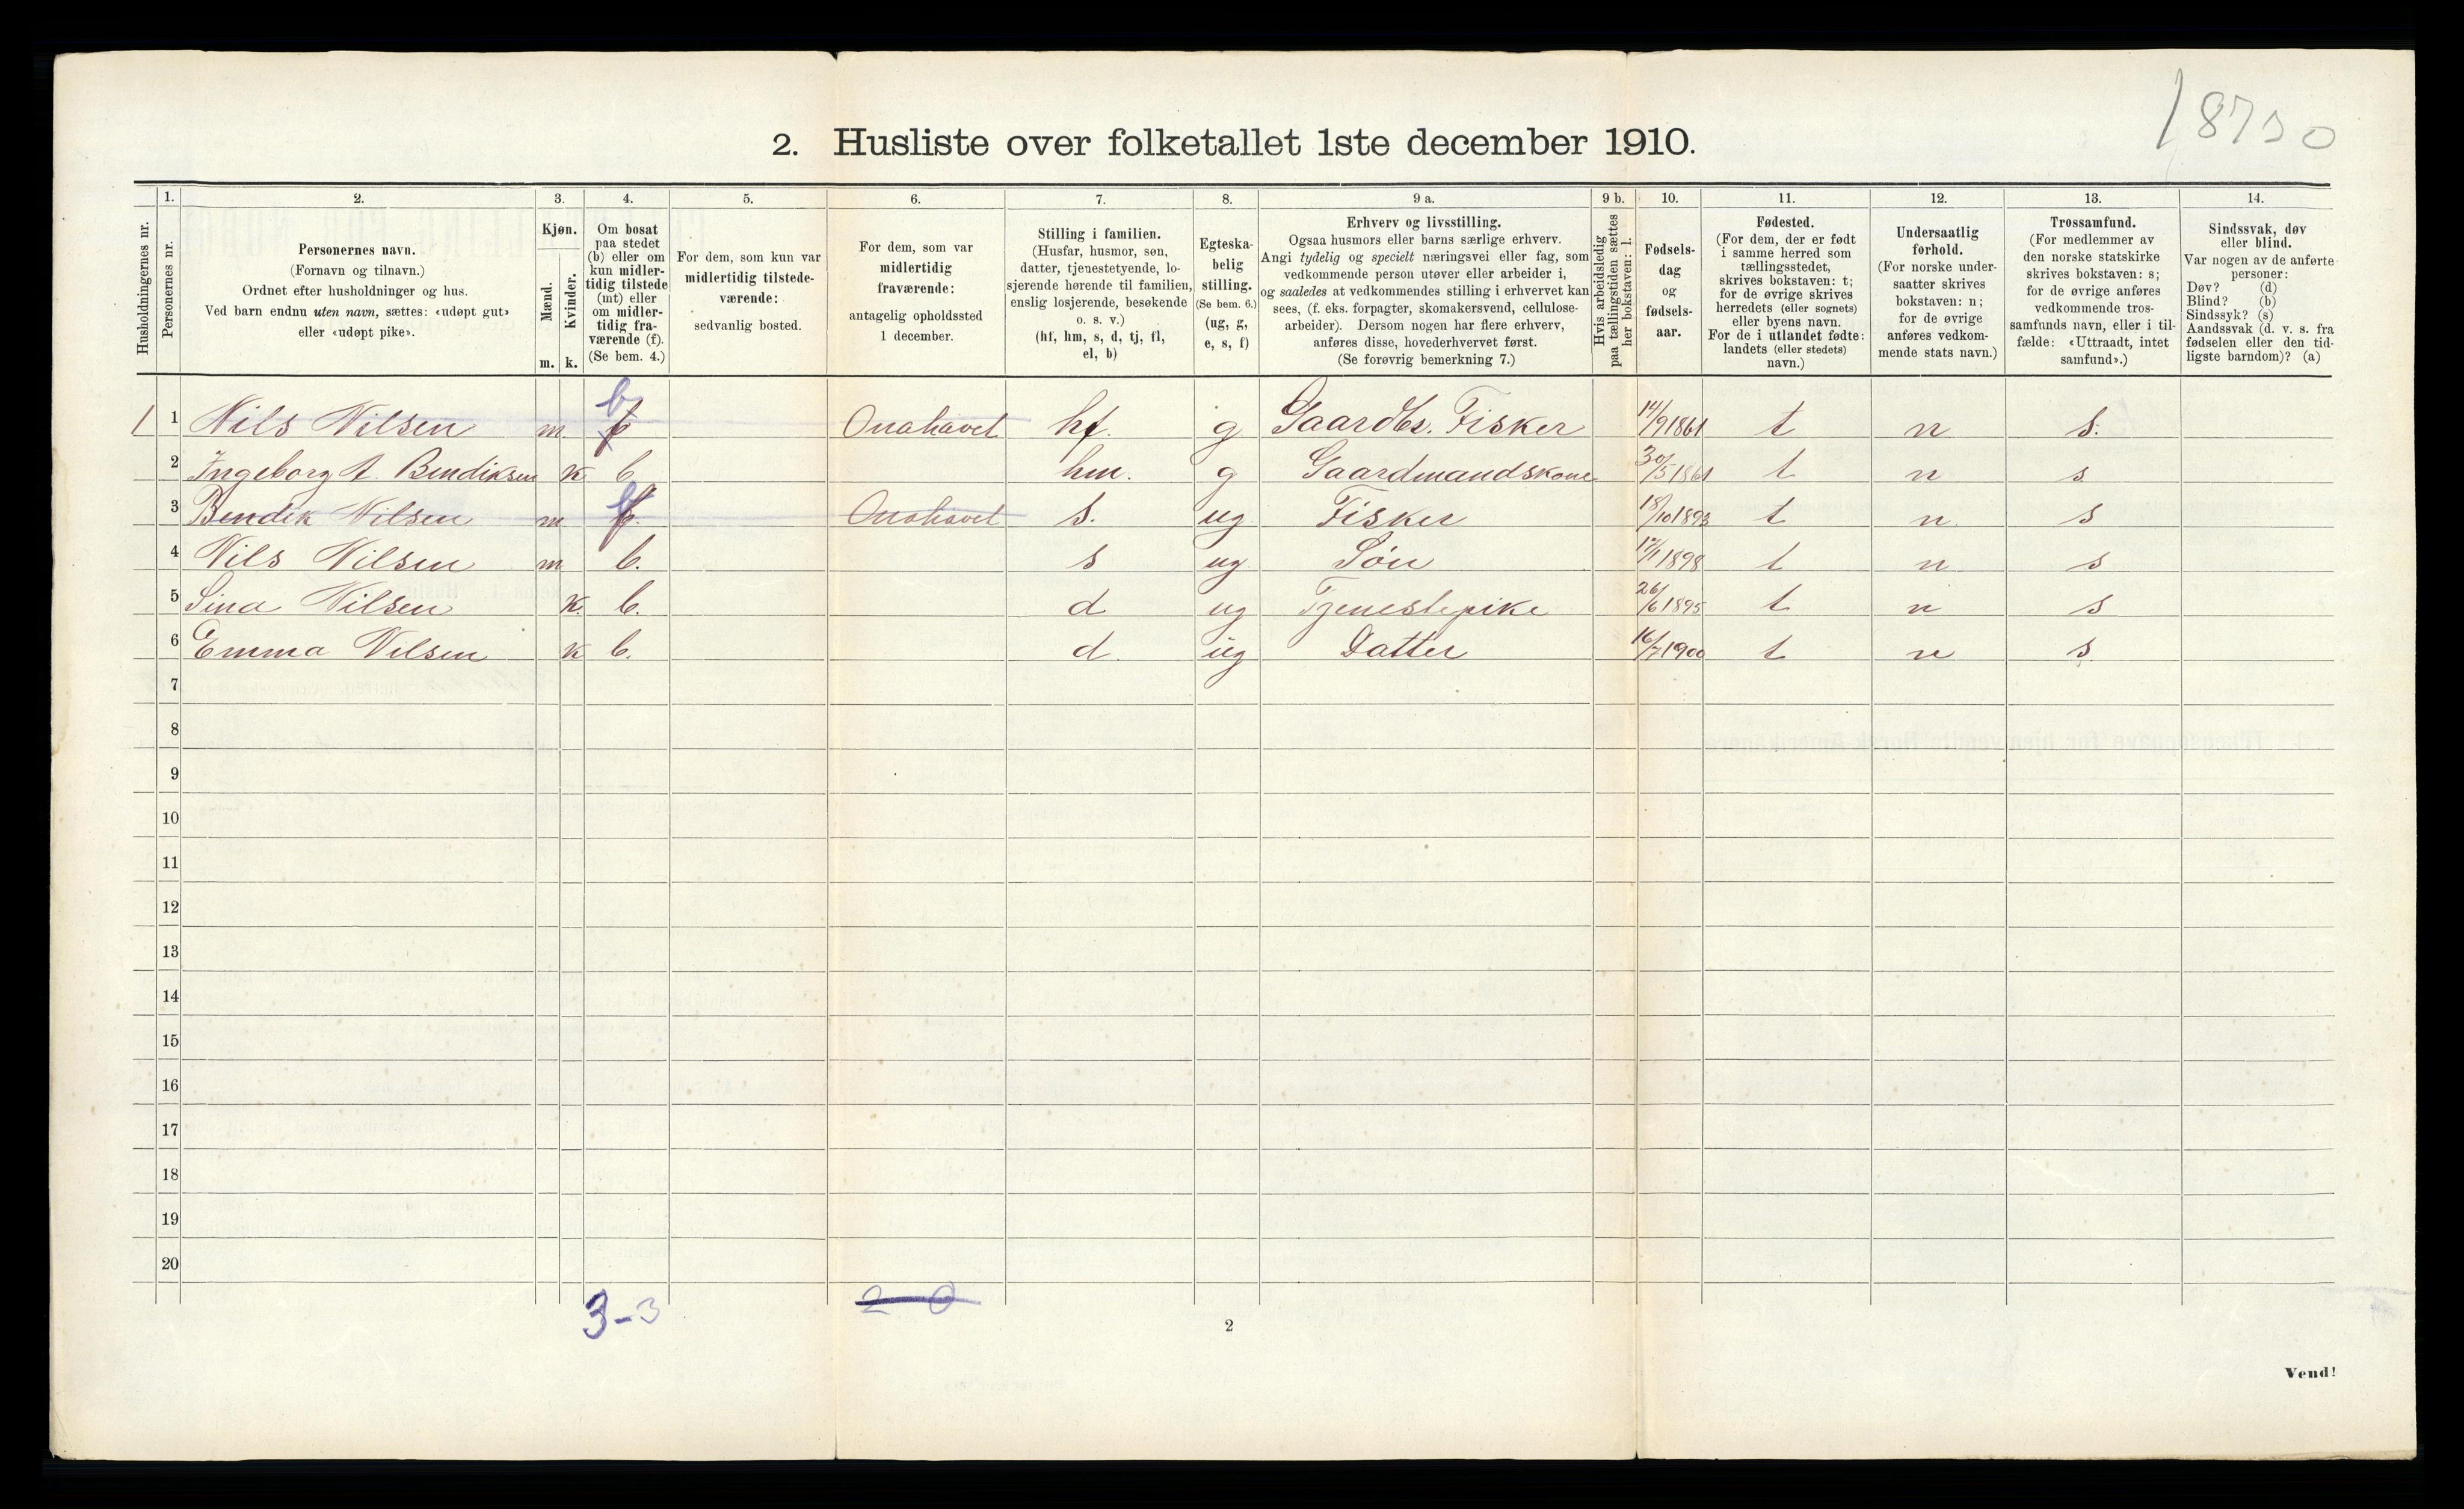 18730
2. Husliste over folketallet 1ste december 1910.
Husholdningernes nr.
1.
Personernes nr.
2.
Personernes navn.
(Fornavn og tilnavn.)
Ordnet efter husholdninger og hus.
Ved barn endnu uten navn, sættes: «udøpt gut»
eller «udøpt pike».
3.
Kjøn.
Mænd.
Kvinder.
m. k.
4.
Om bosat
paa stedet
(b) eller om
kun midler-
tidig tilstede
(mt) eller
om midler-
tidig fra-
værende (f).
(Se bem. 4.)
5.
For dem, som kun var
midlertidig tilstede-
værende:
sedvanlig bosted.
6.
For dem, som var
midlertidig
fraværende:
antagelig opholdssted
1 december.
7.
Stilling i familien.
(Husfar, husmor, søn,
datter, tjenestetyende, lo-
sjerende hørende til familien,
enslig losjerende, besøkende
o. s. v.)
(hf, hm, s, d, tj, fl,
el, b)
8.
Egteska-
belig
stilling.
(Se bem. 6.)
(ug, g,
e, s, f)
9 a.
Erhverv og livsstilling.
Ogsaa husmors eller barns særlige erhverv.
Angi tydelig og specielt næringsvei eller fag, som
vedkommende person utøver eller arbeider i,
og saaledes at vedkommendes stilling i erhvervet kan
sees, (f. eks. forpagter, skomakersvend, cellulose-
arbeider). Dersom nogen har flere erhverv,
anføres disse, hovederhvervet først.
(Se forøvrig bemerkning 7.)
9 b.
Hvis arbeidsledig
paa tællingstiden sættes
her bokstaven: l.
10.
Fødsels-
dag
og
fødsels-
aar.
11.
Fødested.
(For dem, der er født
i samme herred som
tællingsstedet,
skrives bokstaven: t;
for de øvrige skrives
herredets (eller sognets)
eller byens navn.
For de i utlandet fødte:
landets (eller stedets)
navn.)
12.
Undersaatlig
forhold.
(For norske under-
saatter skrives
bokstaven: n;
for de øvrige
anføres vedkom-
mende stats navn.)
13.
Trossamfund.
(For medlemmer av
den norske statskirke
skrives bokstaven: s;
for de øvrige anføres
vedkommende tros-
samfunds navn, eller i til-
fælde: «Uttraadt, intet
samfund».)
14.
Sindssvak, døv
eller blind.
Var nogen av de anførte
personer:
Døv? (d)
Blind? (b)
Sindssyk? (s)
Aandssvak (d. v. s. fra
fødselen eller den tid-
ligste barndom)? (a)
1 1 Nils Nilsen m. b Onahavet hf. g Gaardbr. Fisker 14/9 1861 t n s.
2 Ingeborg A. Bendiksen k b hm. g Gaardmandskone 30/5 1861 t n s
3 Bendik Nilsen m b Onahavet s. ug Fisker 18/10 1893 t n. s
4 Nils Nilsen m b. s ug Søn 1898 t n s
5 Sina Nilsen k. b. d ug Tjenestepike 26/6 1895 t n s
6 Emma Nilsen k b. d. ug Datter 16/7 1900 t n s
7
8
9
10
11
12
13
14
15
16
17
18
19
20
3-3 2-0
2
Vend!